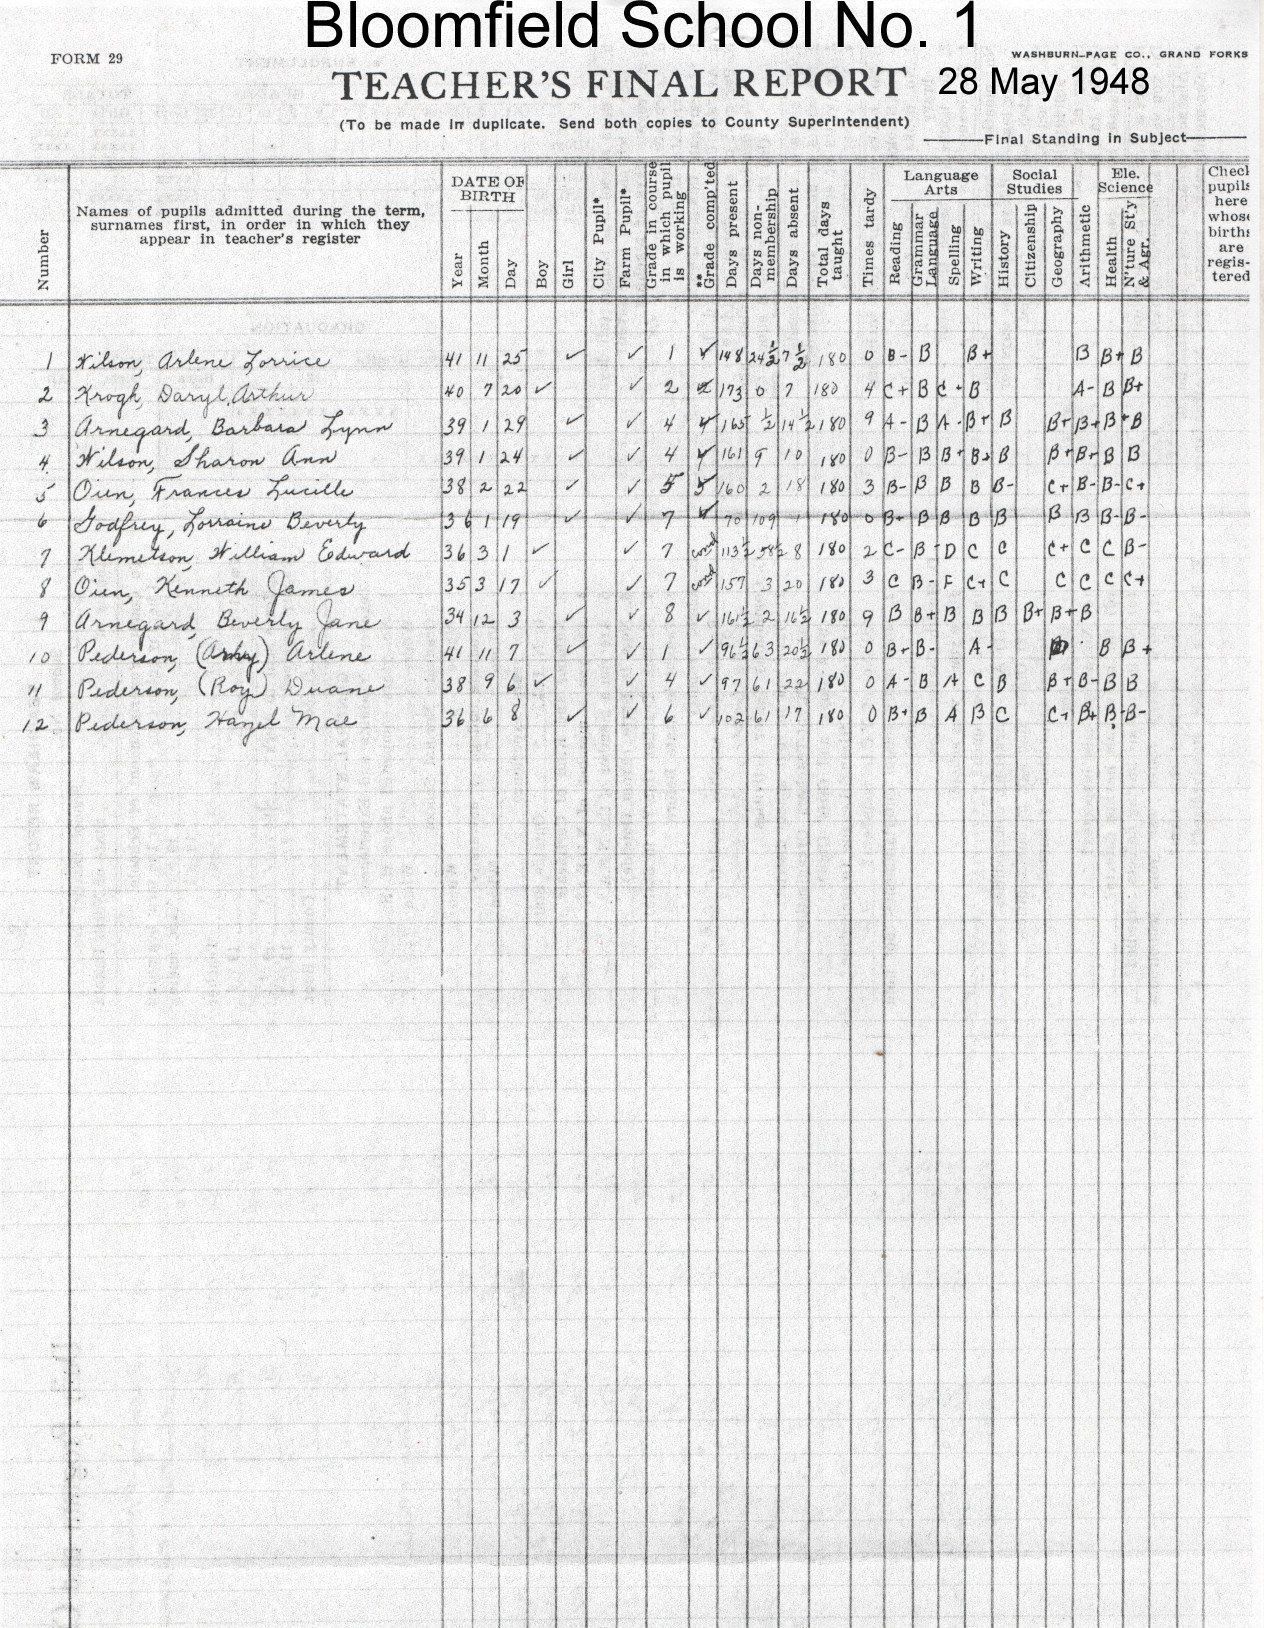 Bloomfield School No. 1
FORM 29
WASHBURN-PAGE CO., GRAND FORKS
TEACHER'S FINAL REPORT 28 May 1948
(To be made in duplicate. Send both copies to County Superintendent)
Final Standing in Subject
Number
Names of pupils admitted during the term, surnames first, in order in which they appear in teacher's register
DATE OF BIRTH
Year
Month
Day
Boy
Girl
City Pupil*
Farm Pupil*
Grade in course in which pupil is working
** Grade comp'ted
Days present
Days non-membership
Days absent
Total days taught
Times tardy
Language Arts
Reading
Grammar Language
Spelling
Writing
Social Studies
History
Citizenship
Geography
Arithmetic
Ele. Science
Health
N'ture St'y & Agr.
Check pupils here whose births are regis-tered
1 Wilson, Arlene Lorrice 41 11 25 ✓ ✓ 1 ✓ 148 24½ 7½ 180 0 B- B B+ B B+ B
2 Krogh, Daryl Arthur 40 7 20 ✓ ✓ 2 173 0 7 180 4 C+ B C+ B A- B B+
3 Arnegard, Barbara Lynn 39 1 29 ✓ ✓ 4 165 ½ 14½ 180 9 A- B A- B+ B B+ B+ B+ B
4 Wilson, Sharon Ann 39 1 24 ✓ ✓ 4 161 9 10 180 0 B- B B+ B+ B B+ B+ B B
5 Oien, Frances Lucille 38 2 22 ✓ ✓ 5 5 160 2 18 180 3 B- B B B B- C+ B- B- C+
6 Godfrey, Lorraine Beverly 36 1 19 ✓ ✓ 7 70 109 1 180 0 B+ B B B B B B B- B-
7 Klemetson, William Edward 36 3 1 ✓ ✓ 7 cond 113½ 58½ 8 180 2 C- B- D C C C+ C C B-
8 Oien, Kenneth James 35 3 17 ✓ ✓ 7 cond 157 3 20 180 3 C B- F C+ C C C C C+
9 Arnegard, Beverly Jane 34 12 3 ✓ ✓ 8 ✓ 161½ 2 16½ 180 9 B B+ B B B B+ B+ B
10 Pederson, Arlene 41 11 7 ✓ ✓ 1 ✓ 96½ 63 20½ 180 0 B+ B- A- B B+
11 Pederson, (Roy) Duane 38 9 6 ✓ ✓ 4 ✓ 97 61 22 180 0 A- B A C B B+ B- B B
12 Pederson, Hazel Mae 36 6 8 ✓ ✓ 6 ✓ 102 61 17 180 0 B+ B A B C C+ B+ B- B-